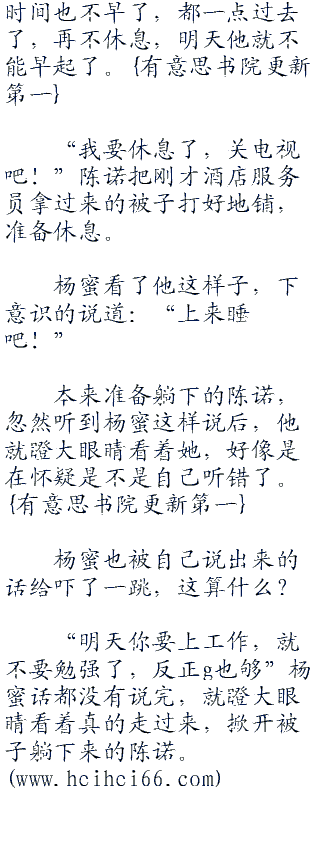 时间也不早了，都一点过去
了，再不休息，明天他就不
能早起了。{有意思书院更新
第一}
“我要休息了，关电视
吧！”陈诺把刚才酒店服务
员拿过来的被子打好地铺，
准备休息。
杨蜜看了他这样子，下
意识的说道：“上来睡
吧！”
本来准备躺下的陈诺，
忽然听到杨蜜这样说后，他
就瞪大眼睛看着她，好像是
在怀疑是不是自己听错了。
{有意思书院更新第一}
杨蜜也被自己说出来的
话给吓了一跳，这算什么？
“明天你要上工作，就
不要勉强了，反正g也够”杨
蜜话都没有说完，就瞪大眼
睛看着真的走过来，掀开被
子躺下来的陈诺。
(www.hcihci66.com)